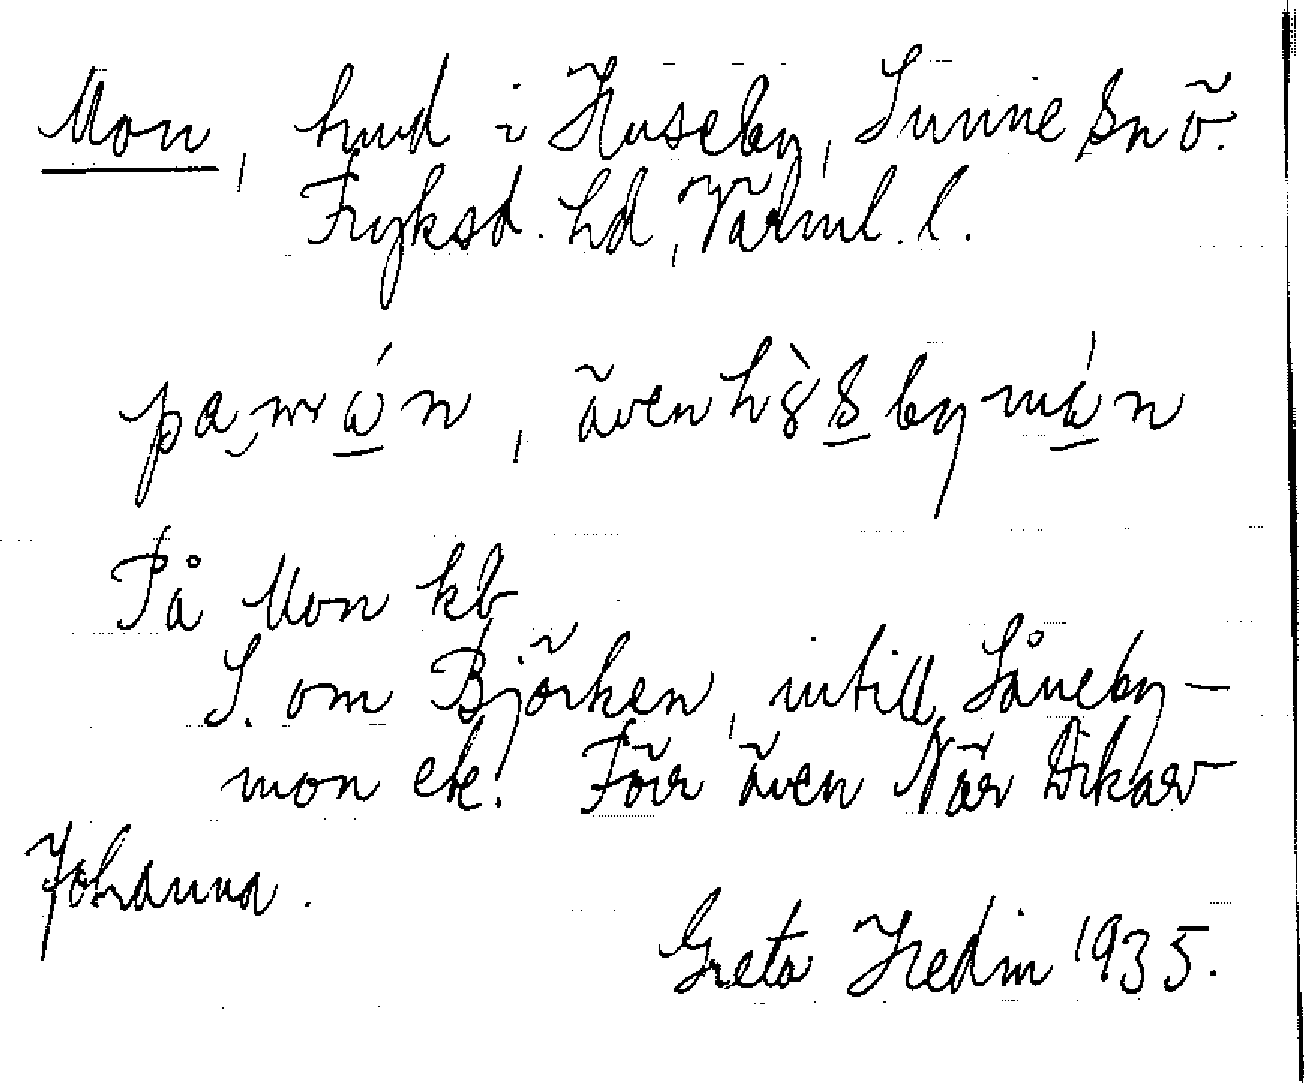 Mon, hmd i Huseby, Sunne sn ö.
Fryksd. hd, Värml. l.
pa mán, även by mán
På Mon kb
S. om Björken, intill Såneby-
mon etc. Förr även När Dikar
Johanna.
Greta Hedin 1935.